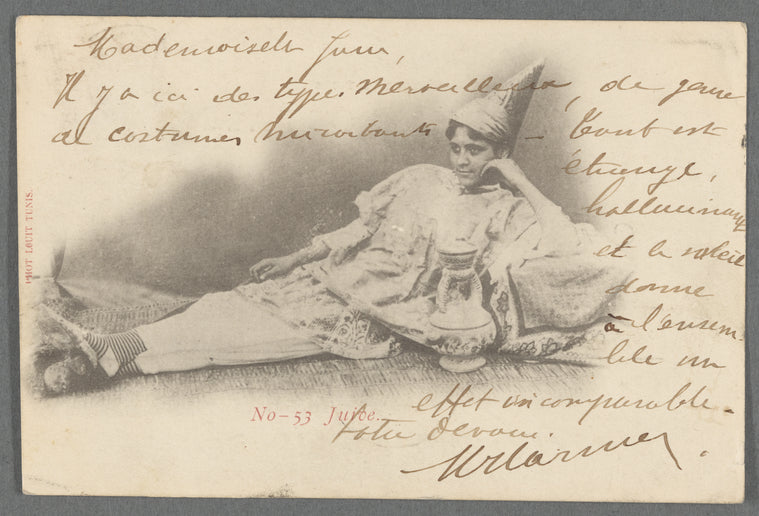 Mademoiselle
Il y a ici des types merveilleux, de genre
de costumes
Tout est
étrange,
hallucinant
et le soleil
donne
à l'ensem-
ble un
effet incomparable.
Votre dévoué.
PHOT LOUIT TUNIS.
No-53 Juive.